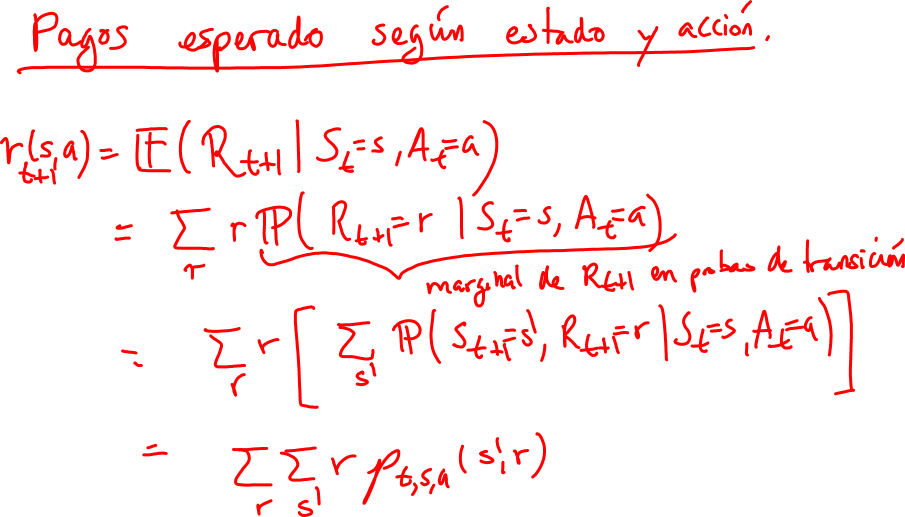 Pagos esperado según estado y acción.
r_{t+1}(s,a) = 𝔼(R_{t+1} | S_t=s, A_t=a)
= ∑_r r ℙ(R_{t+1}=r | S_t=s, A_t=a)
marginal de R_{t+1} en probas de transición
= ∑_r r [∑_{s'} ℙ(S_{t+1}=s', R_{t+1}=r | S_t=s, A_t=a)]
= ∑_r ∑_{s'} r p_{t,s,a}(s',r)